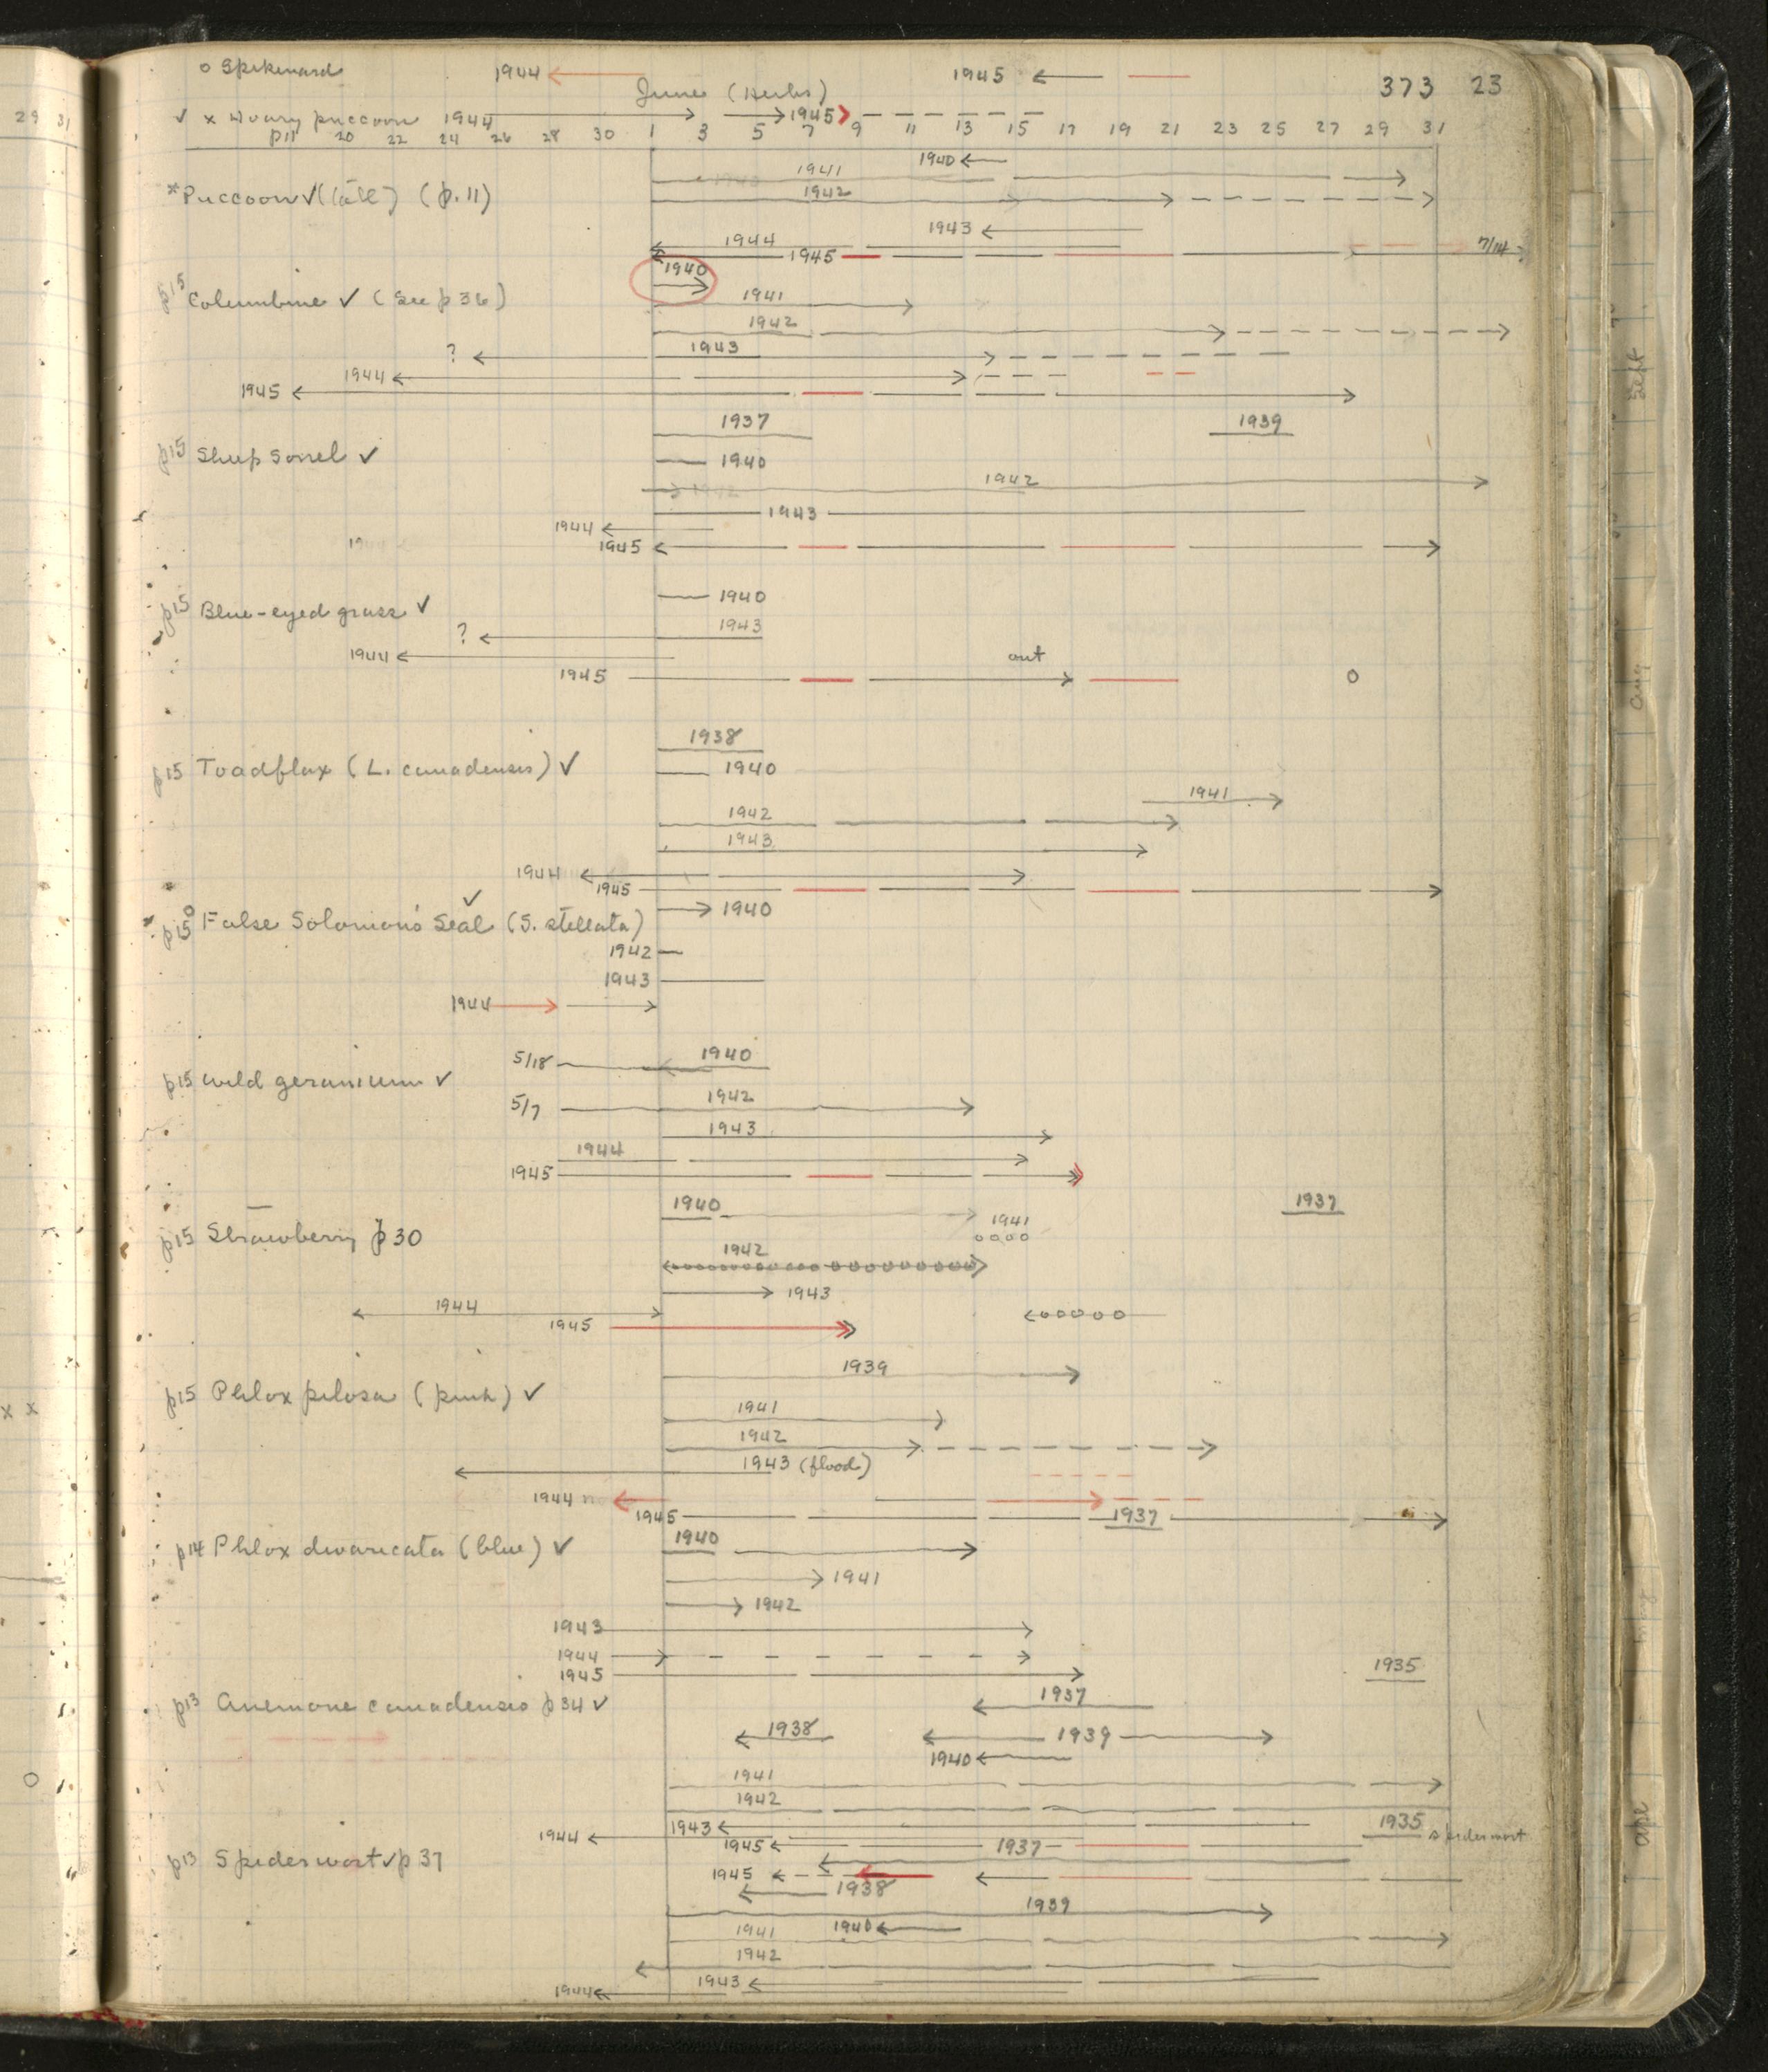 29 31
o Spikenard 1944 1945 373 23
June (Herbs)
✓ x Hoary puccoon 1944 1945
p11 20 22 24 26 28 30 1 3 5 7 9 11 13 15 17 19 21 23 25 27 29 31
1940
1941
*Puccoon ✓ (tall) (p.11) 1942
1943
1944
1945 7/14
1940
p15 Columbine ✓ (See p 36) 1941
1942
? 1943
1944
1945
1937 1939
p15 Sheep Sorrel ✓ 1940
1942
1943
1944
1945
1940
p15 Blue-eyed grass ✓
? 1943
1944 out
1945 o
1938
p15 Toadflax (L. canadensis) ✓ 1940
1941
1942
1943
1944
1945
✓ 1940
p15 o False Solomon's Seal (S. stellata)
1942
1943
1944
5/18 1940
p15 Wild geranium ✓
5/7 1942
1943
1944
1945
1940 1937
p15 Strawberry p30 1941
oooo
1942
1943
1944 ooooo
1945
1939
p15 Phlox pilosa (pink) ✓
x x 1941
1942
1943 (flood)
1944
1945 1937
p14 Phlox divaricata (blue) ✓ 1940
1941
1942
1943
1944
1945 1935
p13 Anemone canadensis p34 ✓ 1937
1938 1939
1940
1941
1942
1943 1935 spiderwort
1944
1945 1937
p13 Spiderwort ✓ p37
1945
1938
1939
1941 1940
1942
1943
1944
Sept
Aug
May
Apr